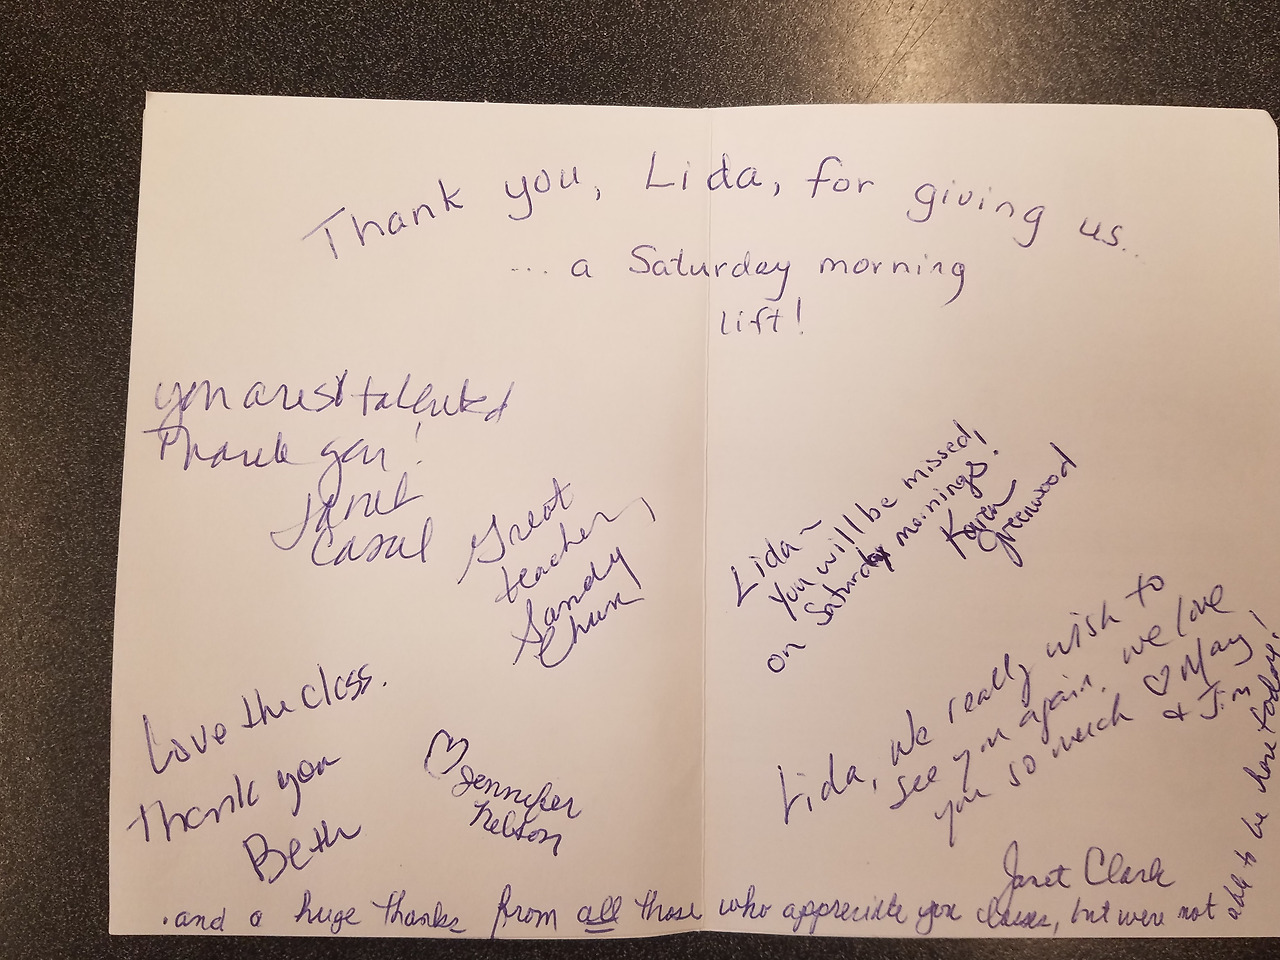 Thank you, Lida, for giving us...
... a Saturday morning
lift!
you are so talented
Thank you!
Janet
Casal
Great
teacher,
Sandy
Chun
Love the class.
Thank you
Beth
♡ Jennifer
Nelson
Lida~
You will be missed,
on Saturday mornings!
Karen
Greenwood
Lida, We really wish to
see you again. we love
you so much ♡ Mary
& Jim
Janet Clark
.and a huge thanks from all those who appreciate you classes, but were not able to be here today!